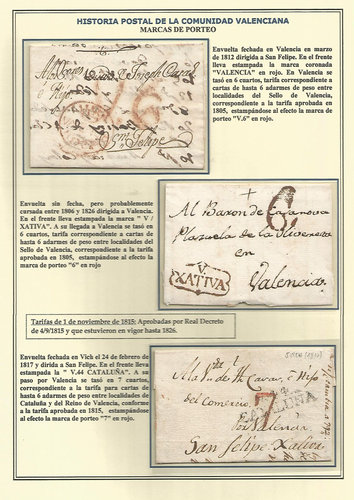 HISTORIA POSTAL DE LA COMUNIDAD VALENCIANA
MARCAS DE PORTEO
Envuelta fechada en Valencia en marzo
de 1812 dirigida a San Felipe. En el frente
lleva estampada la marca coronada
"VALENCIA" en rojo. En Valencia se
tasó en 6 cuartos, tarifa correspondiente a
cartas de hasta 6 adarmes de peso entre
localidades del Sello de Valencia,
correspondiente a la tarifa aprobada en
1805, estampándose al efecto la marca de
porteo "V.6" en rojo
Sn. Felipe
Envuelta sin fecha, pero probablemente
cursada entre 1806 y 1826 dirigida a Valencia.
En el frente lleva estampada la marca " V /
XATIVA". A su llegada a Valencia se tasó en 6
cuartos, tarifa correspondiente a cartas de
hasta 6 adarmes de peso entre localidades del
Sello de Valencia, correspondiente a la tarifa
aprobada en 1805, estampándose al efecto la
marca de porteo "6" en rojo
6
Al Baron de Casanova
Plazuela de la
en
Valencia
V.
XATIVA
Tarifas de 1 de noviembre de 1815: Aprobadas por Real Decreto
de 4/9/1815 y que estuvieron en vigor hasta 1826.
Envuelta fechada en Vich el 24 de febrero de
1817 y dirida a San Felipe. En el frente lleva
estampada la " V.44 CATALUÑA". A su
paso por Valencia se tasó en 7 cuartos,
correspondiente a la tarifa para cartas de
hasta 6 adarmes de peso entre localidades de
Cataluña y del Reino de Valencia, conforme a
la tarifa aprobada en 1815, estampándose
al efecto la marca de porteo "7" en rojo
7
del Comercio
Por Valencia
San Felipe